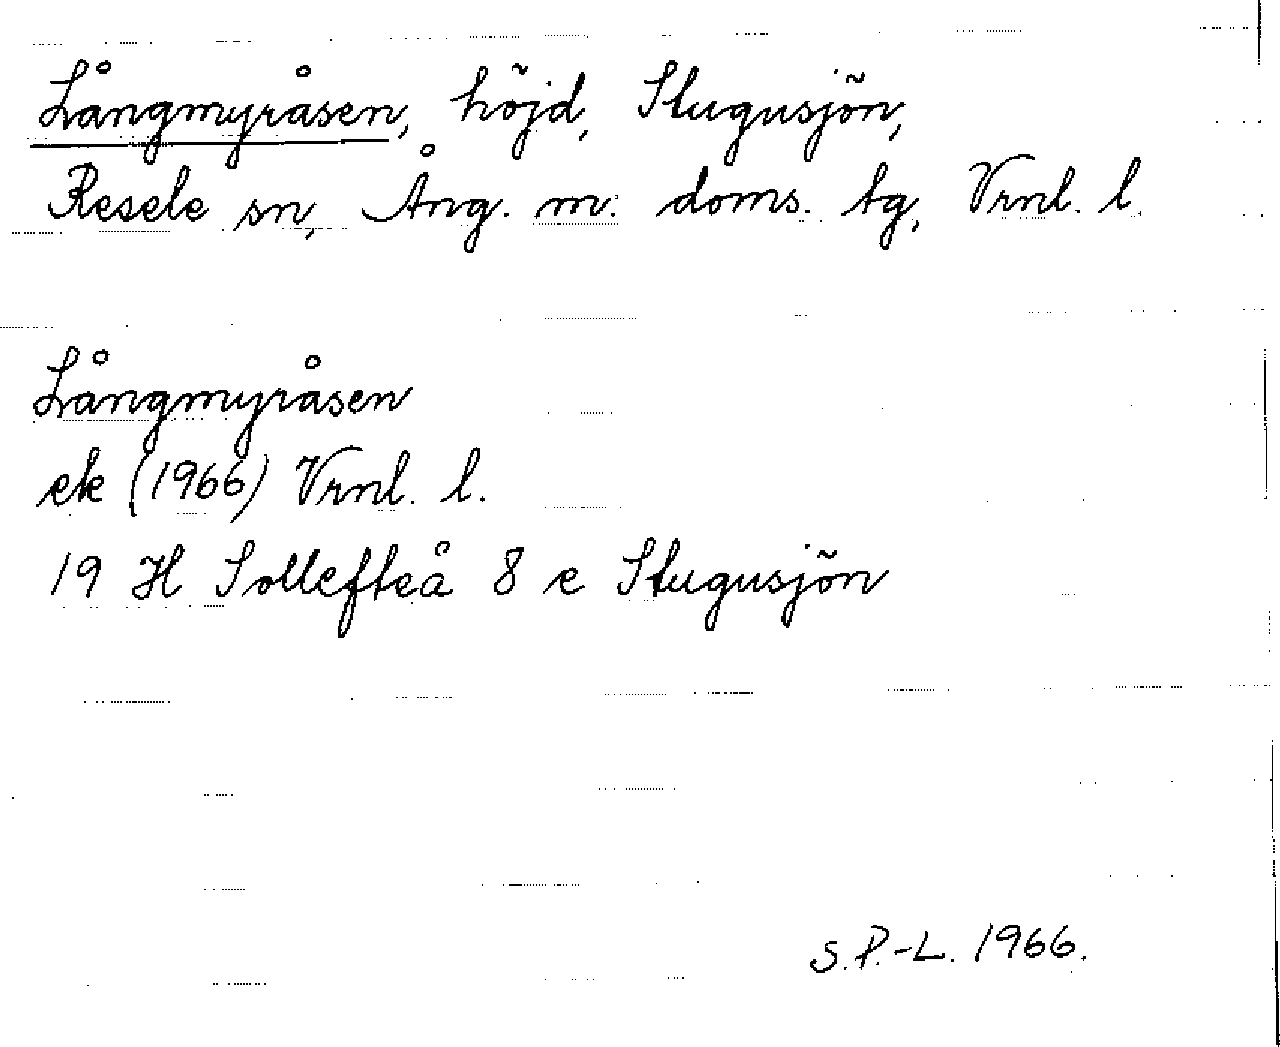 Långmyråsen, höjd, Stugusjön,
Resele sn, Ång. m. doms. tg, Vrnl. l.
Långmyråsen
ek (1966) Vrnl. l.
19 H Sollefteå 8 e Stugusjön
S.P.-L. 1966.